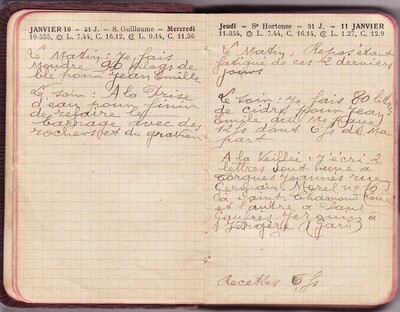 JANVIER 10 – 21 J. – S. Guillaume – Mercredi
10-355, ☉ L. 7.44, C. 16.12, ☾ L. 0.14, C. 11.36
Le Matin: Je fais
Moudre 90 kilogs de
blé pour Jean Emille
Le soir: A la Prise
d'eau pour finir
de refaire le
barrage avec des
rochers et du gravier
Jeudi – Sᵉ Hortense – 31 J. – 11 JANVIER
11-354, ☉ L. 7.44, C. 16.14, ☾ L. 1.27, C. 12.9
Le Matin. Repos étant
fatigué de ces 2 derniers
jours
Le soir: Je fais 80 lit
de cidre pour Jean
Emile qui me paye
12 fs dont 6 fs de Ma
part
A la Veillée: J'écri 2
lettres dont une à
Jeannes rue
Germain Morel no 10
à Saint Chamond (Loire)
et l'autre à
à
(Gard)
Recettes 6 fs